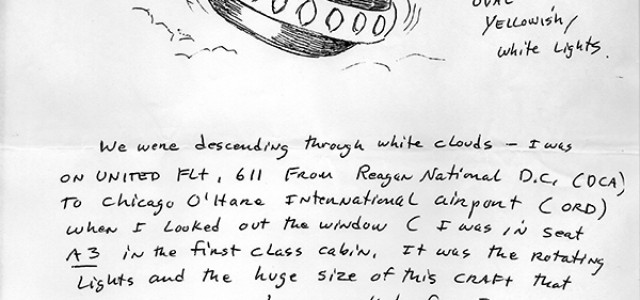 OVAL
YELLOWISH/
WHITE LIGHTS.
We were descending through white clouds – I was
ON UNITED FLT, 611 FROM Reagan National D.C. (DCA)
TO Chicago O'Hare International airport (ORD)
when I Looked out the window ( I was in seat
A3 in the first class cabin. It was the rotating
Lights and the huge size of this CRAFT that